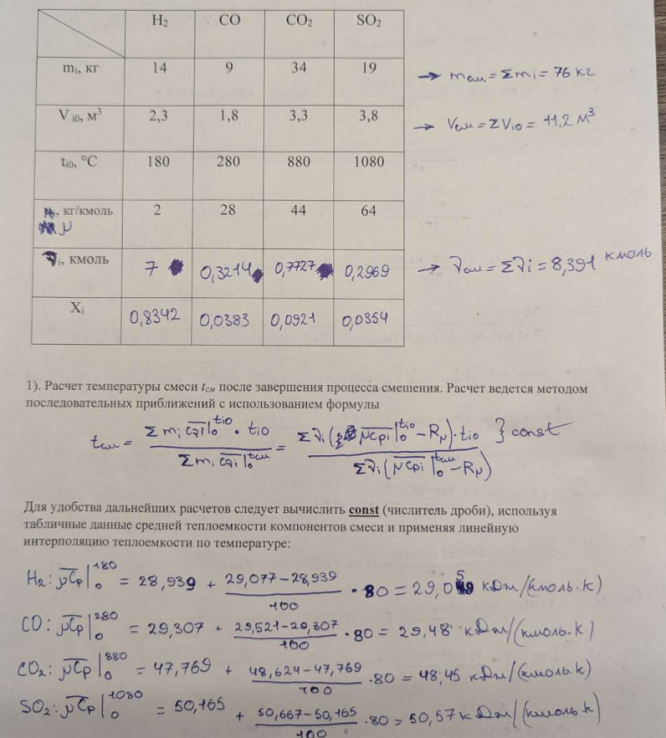 H₂ CO CO₂ SO₂
mᵢ, кг 14 9 34 19 → mсм = Σmᵢ = 76 кг
Vᵢ₀, м³ 2,3 1,8 3,3 3,8 → Vсм = ΣVᵢ₀ = 11,2 м³
tᵢ₀, °C 180 280 880 1080
μ, кг/кмоль 2 28 44 64
νᵢ, кмоль 7 0,3214 0,7727 0,2969 → νсм = Σνᵢ = 8,391 кмоль
Xᵢ 0,8342 0,0383 0,0921 0,0354
1). Расчет температуры смеси tсм после завершения процесса смешения. Расчет ведется методом
последовательных приближений с использованием формулы
tсм = Σmᵢ c̅ᵥᵢ|₀^tᵢ₀ · tᵢ₀ / Σmᵢ c̅ᵥᵢ|₀^tсм = Σνᵢ(μc̅pᵢ|₀^tᵢ₀ − Rμ)·tᵢ₀ / Σνᵢ(μc̅pᵢ|₀^tсм − Rμ) } const
Для удобства дальнейших расчетов следует вычислить const (числитель дроби), используя
табличные данные средней теплоемкости компонентов смеси и применяя линейную
интерполяцию теплоемкости по температуре:
H₂: μc̅p|₀^180 = 28,939 + (29,077−28,939)/100 · 80 = 29,05 кДж/(кмоль·к)
CO: μc̅p|₀^280 = 29,307 + (29,521−29,307)/100 · 80 = 29,48 кДж/(кмоль·к)
CO₂: μc̅p|₀^880 = 47,769 + (48,624−47,769)/100 · 80 = 48,45 кДж/(кмоль·к)
SO₂: μc̅p|₀^1080 = 50,165 + (50,667−50,165)/100 · 80 = 50,57 кДж/(кмоль·к)